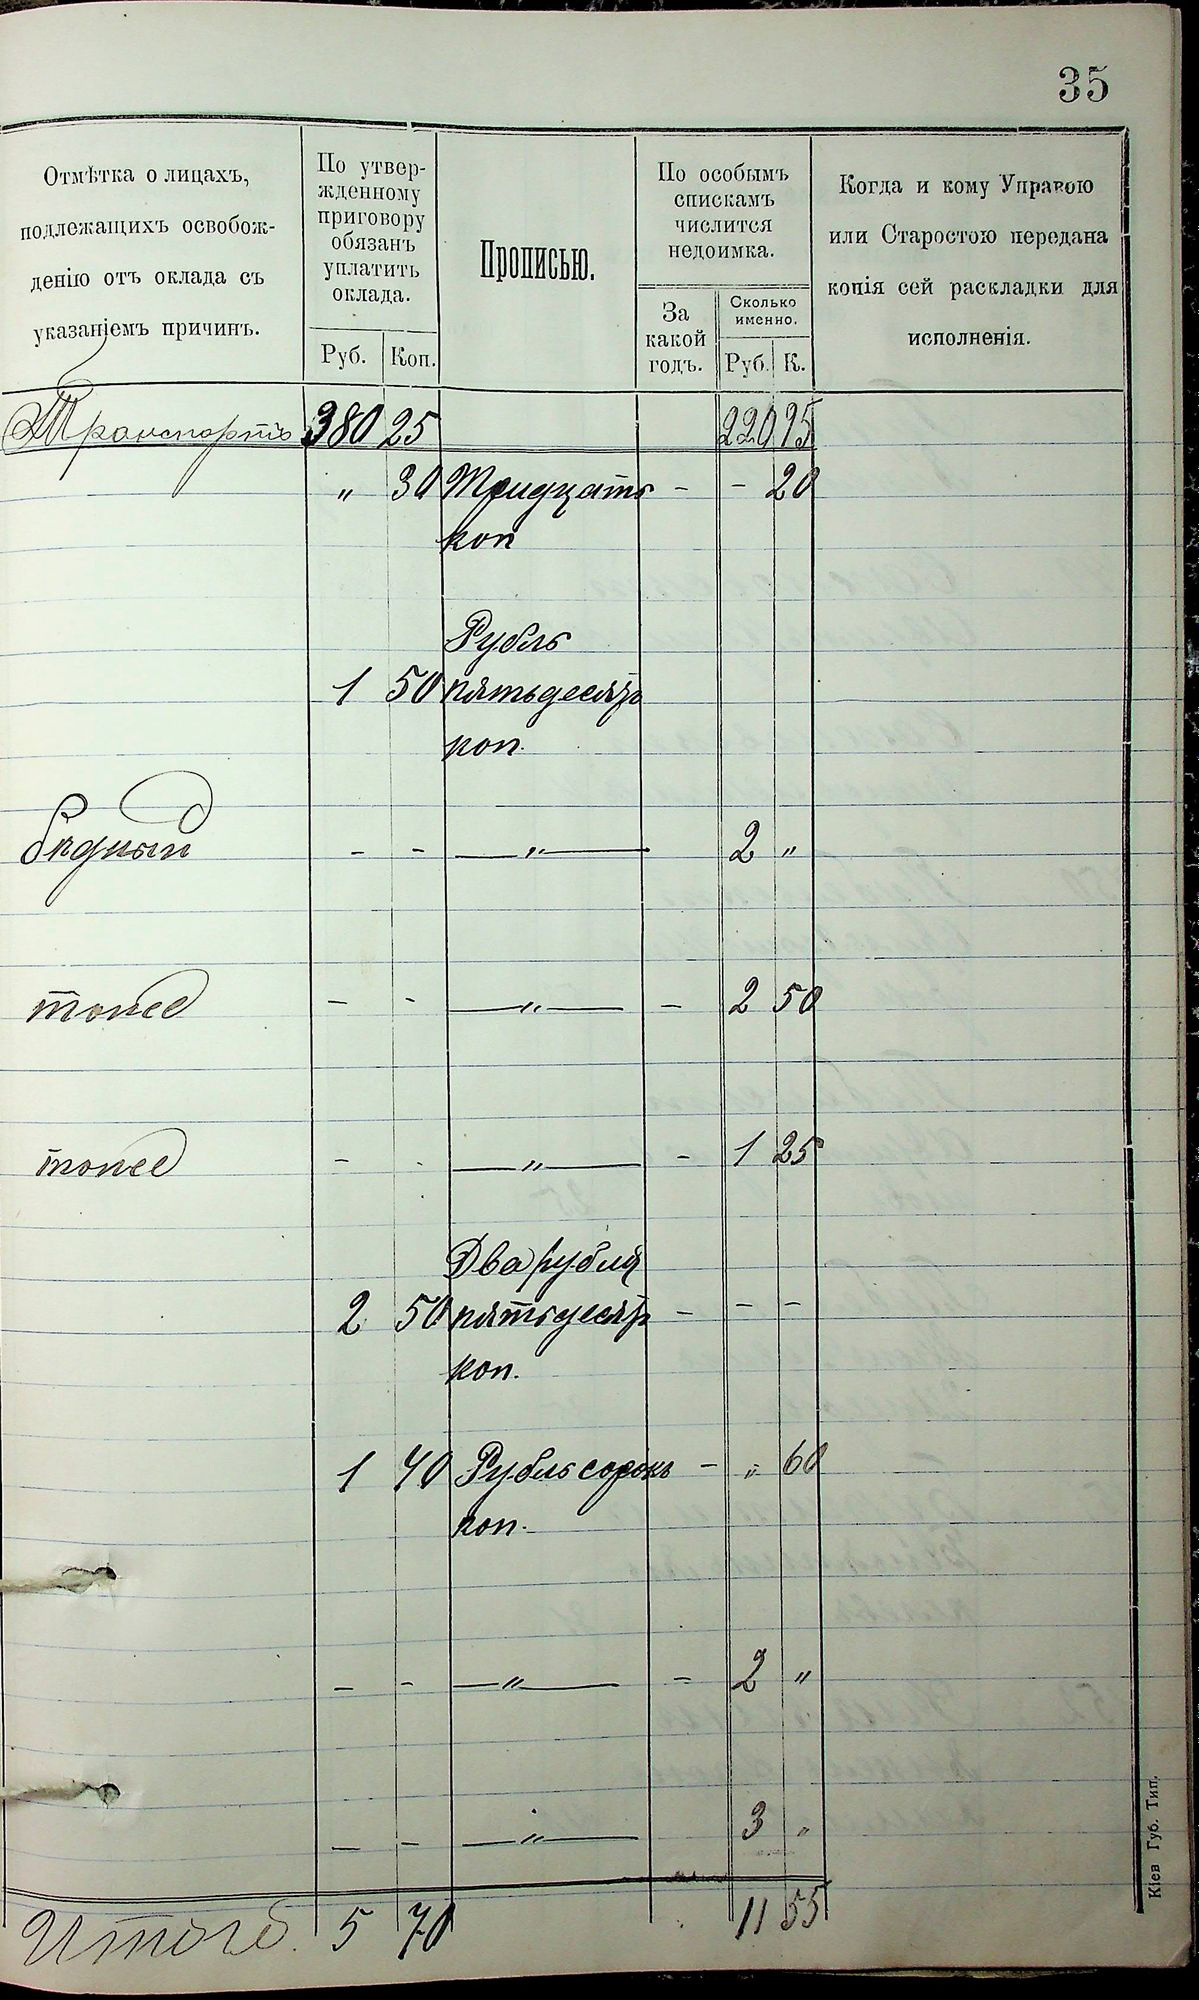 35
Отмѣтка о лицахъ,
подлежащихъ освобож-
денію отъ оклада съ
указаніемъ причинъ.
По утвер-
жденному
приговору
обязанъ
уплатить
оклада.
Руб. Коп.
Прописью.
По особымъ
спискамъ
числится
недоимка.
За
какой
годъ.
Сколько
именно.
Руб. К.
Когда и кому Управою
или Старостою передана
копія сей раскладки для
исполненія.
Транспортъ 380 25 220 95
" 30 Тридцать - - 20
коп
Рубль
1 50 пятьдесятъ
коп.
бѣдный - - — " — 2 "
тоже - - — " — - 2 50
тоже - - — " — - 1 25
Два рубля
2 50 пятьдесятъ - - -
коп.
1 40 Рубль сорокъ - " 60
коп.
- - — " — - 2 "
— - — " — 3 "
Итого 5 70 11 55
Кіев Губ. Тип.